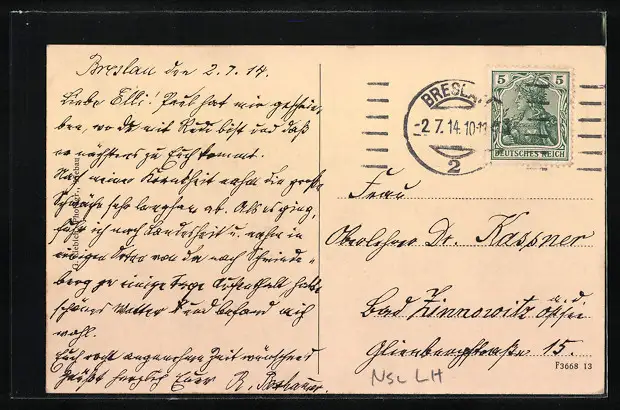 Breslau den 2.7.14.
Liebe Elli! Paul hat mir geschrie-
ben, wo du mit Rudi bist und daß
er nächstens zu Euch kommt.
Nach meiner Krankheit nahm die große
Schwäche sehr langsam ab. Als es ging,
fuhr ich nach Landeshut u. nahm in
einigen
von da nach Schmiede-
berg zu einige Tage Aufenthalt hatte
schönes Wetter und befand mich
wohl.
Euch recht angenehme Zeit wünschend
grüßt herzlich Euer R.
BRESLAU
-2.7.14.10-11
2
5 5
DEUTSCHES REICH
Frau
Oberlehrer Dr. Kassner
Bad Zinnowitz a.d.
Ostsee
Glienbergstraße 15.
F3668 13
NSL LH